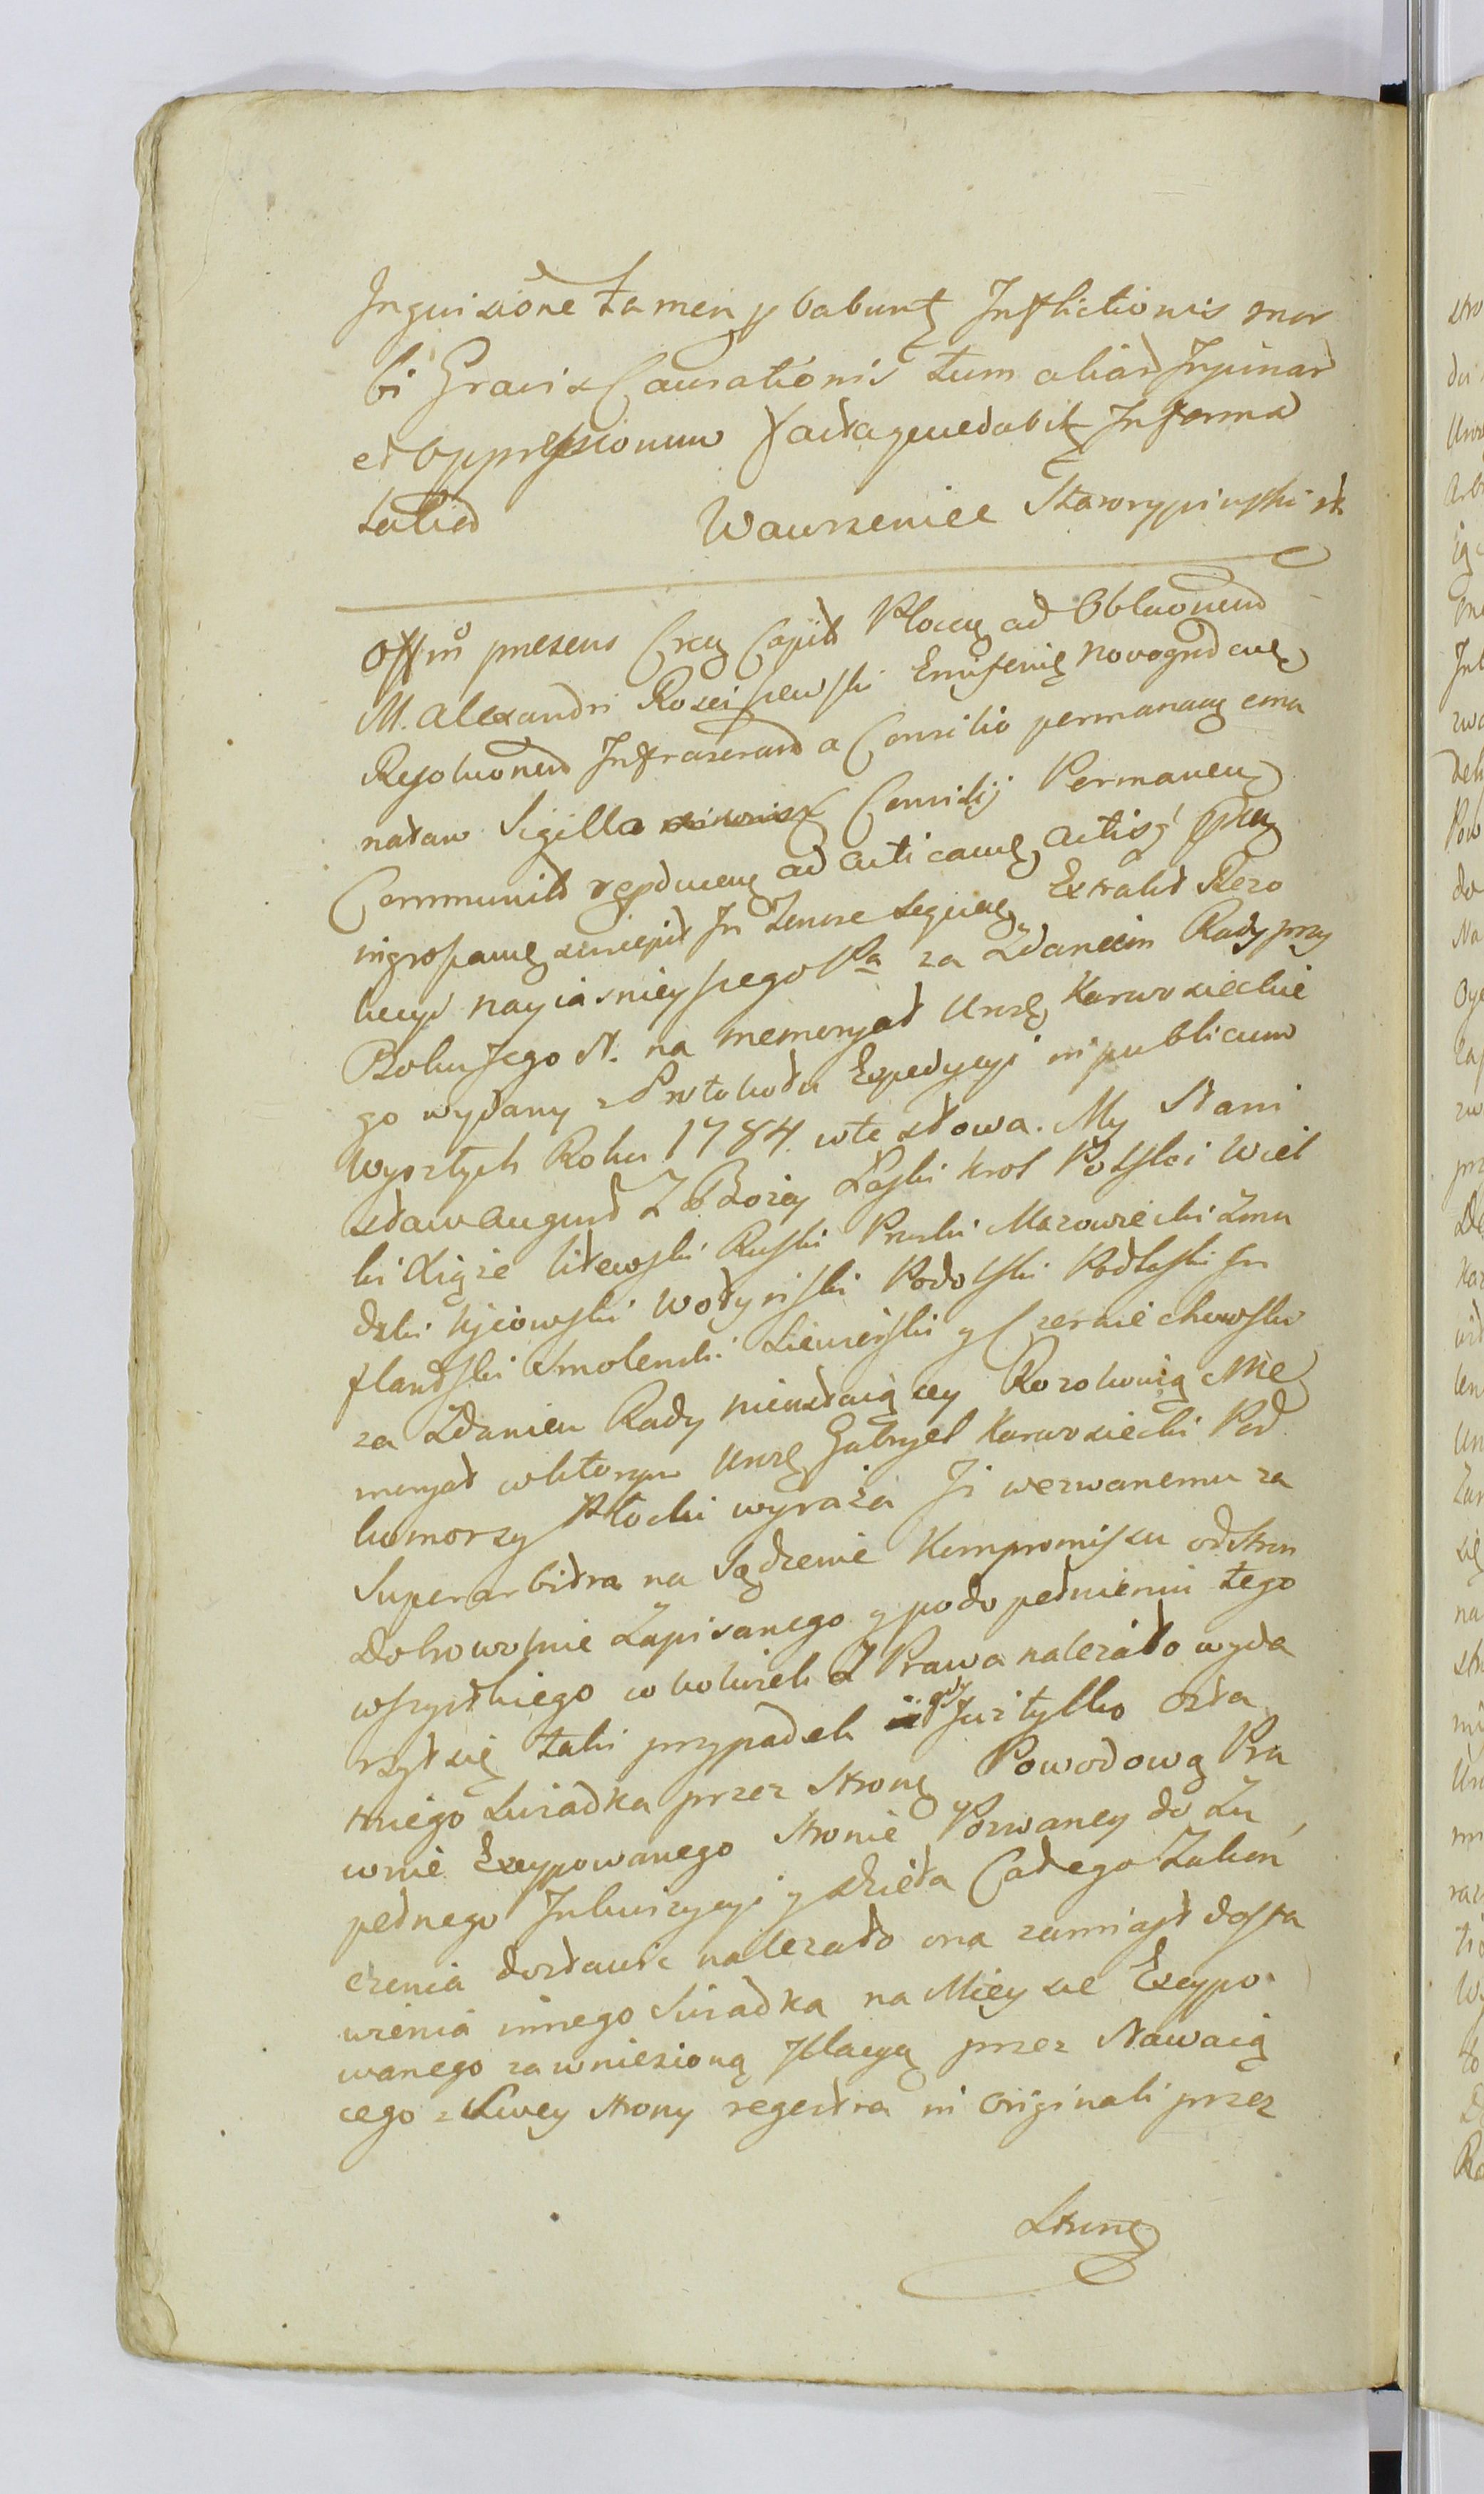 Inquisione tamen pbabunt Inflictionis mor
bi Gravis Causationis tum aliar Injuriar
et oppressionum facta quae dabit Informa
talied Wawrzeniec Staworypinski
Offm presens Cap Plocen ad Oblaonem
M. Alexandri Rosciszewski Ensiferi
Resolutionem Infrascram a Consilio permanen ema
natam Sigillo Consilij Permanen
Communit ad acticane actisq
ingrossane suscepit In Tenore seque Extrakt Rezo
lucyi nayiasnieyszego Pa za Zdaniem Rady przy
Boku Jego N. na memoryał Urze Karwosieckie
go wydany z Protokołu Expedycyi in publicum
wyszłych Roku 1784. w te słowa. My Stani
sław August Z Bożey Łaski Krol Polski Wiel
ki Xiąże Litewski Ruski Pruski Mazowiecki Zmu
dzki Kijowski Wołyński Podolski Podlaski In
flandski Smolenski Siewierski y Czerniechowski
za Zdaniem Rady nieustaiącey Rozolwuią Me
moryał w ktorym Urze Gabryel Karwosiecki Pod
komorzy Płocki wyraża Iż wezwanemu za
Superarbitra na Sądzenie Kompromissu od stron
Dobrowolnie Zapisanego y po dopełnieniu tego
wszystkiego cokolwiek Z Prawa należało wyda
rzył się taki przypadek gdy Już tylko osta
tniego Swiadka przez Stronę Powodową Pra
wnie Excypowanego Stronie Pozwaney do Zu
pełnego Inkwizycyi y dzieła Całego Zakon
czenia dostawić należało ona zamiast dosta
wienia innego Swiadka na Mieysce Excypo
wanego za wniesioną przez Stawaią
cego z Swey strony regestra in originali przez
Stronę